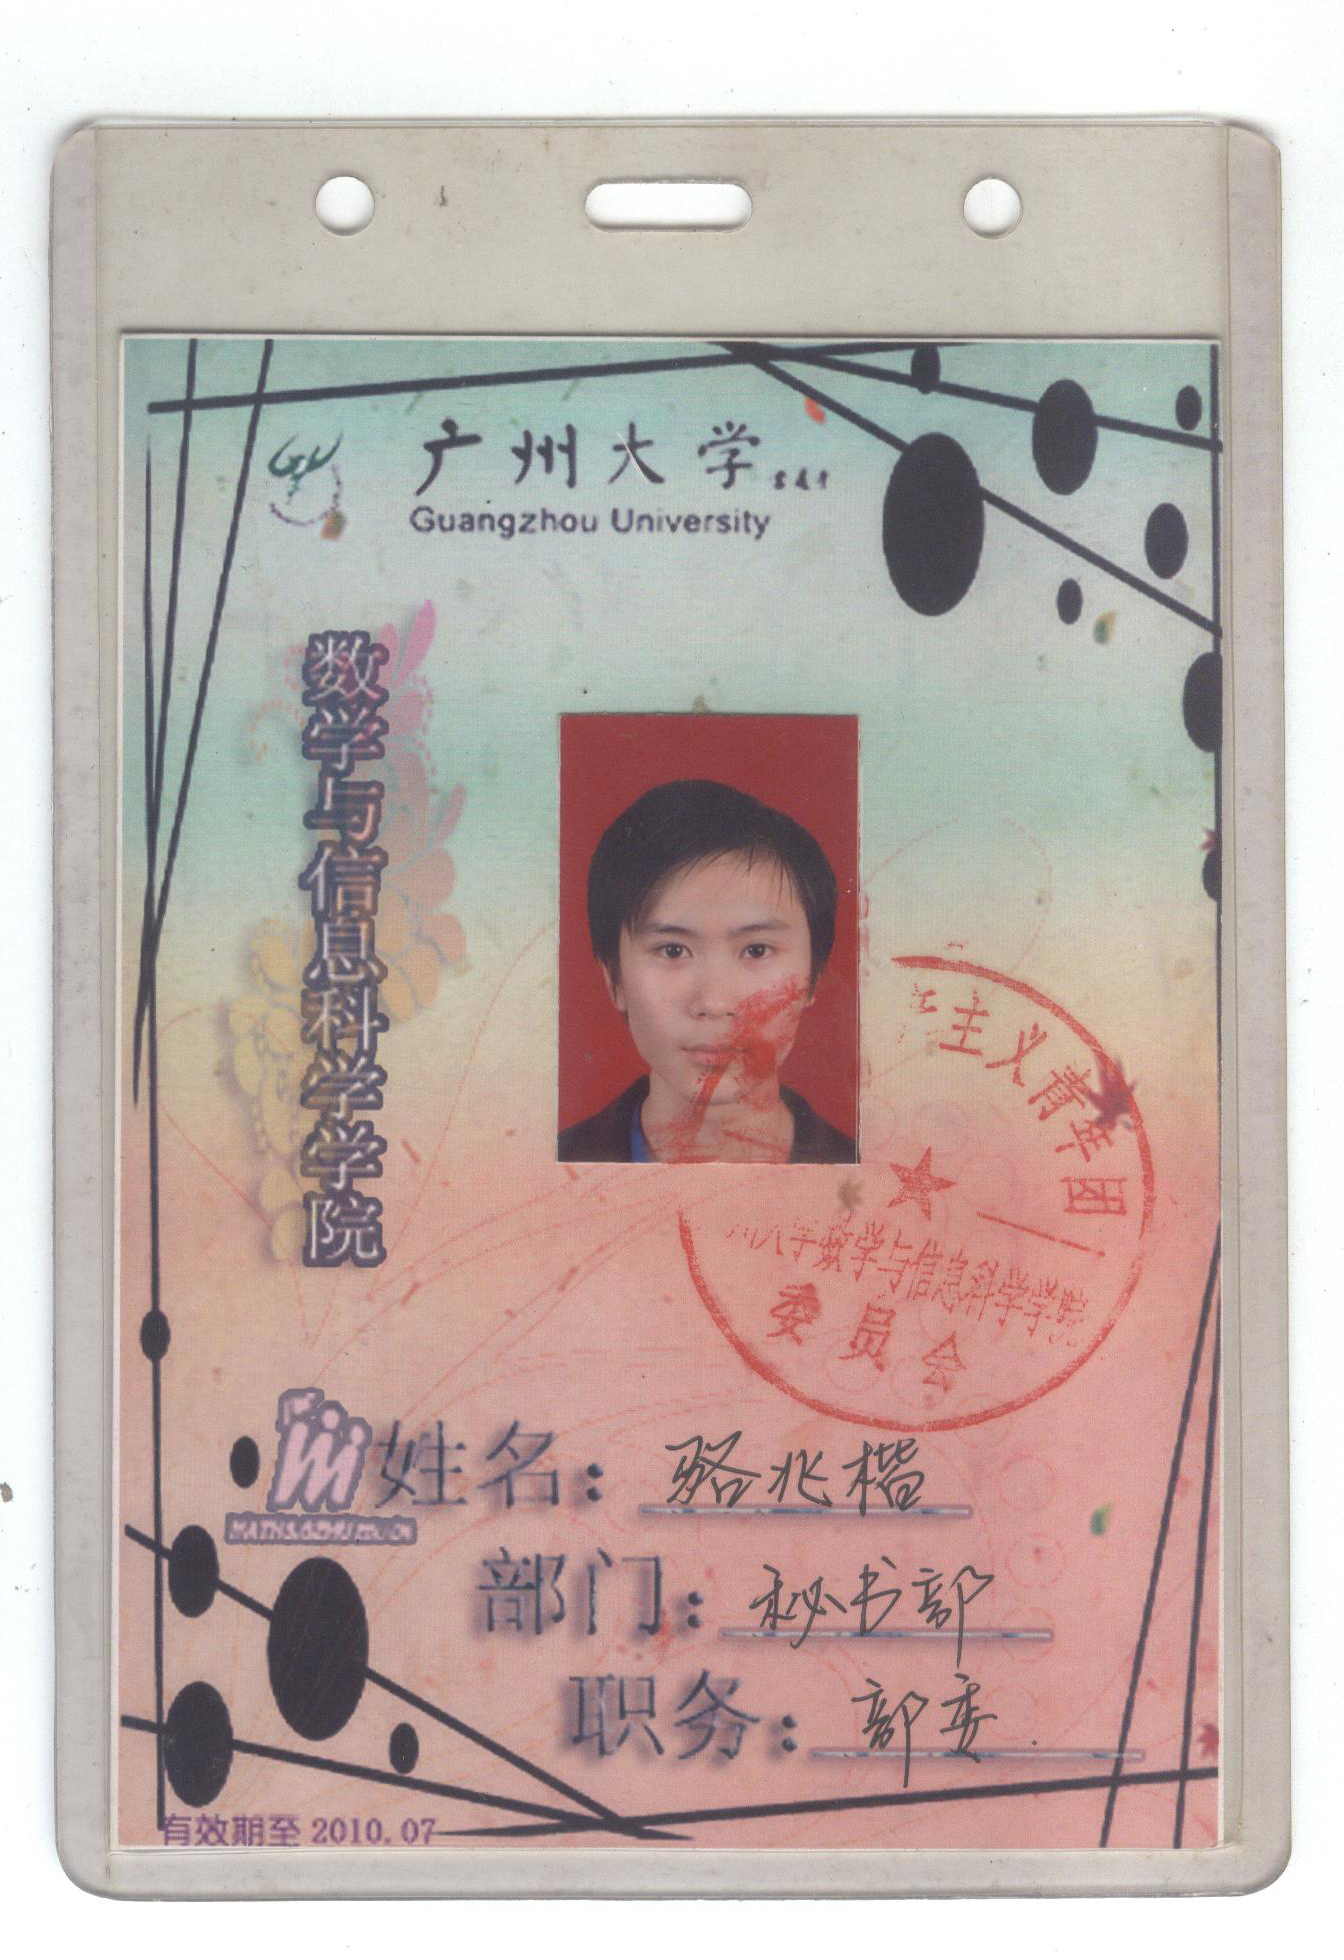 广州大学
Guangzhou University
数学与信息科学学院
主义青年团
州大学数学与信息科学学院
委员会
姓名：骆兆楷
部门：秘书部
职务：部委
有效期至 2010.07